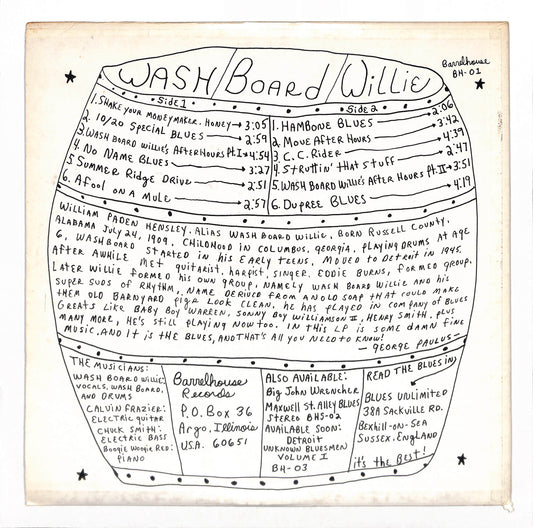 WASH/BOARD/WILLIE
Barrelhouse
BH-01
Side 1
1. SHAKE YOUR MONEYMAKER. HONEY → 3:05
2. 10/20 SPECIAL BLUES → 2:59
3. WASH BOARD WILLIE'S AFTER HOURS PT. I → 4:54
4. NO NAME BLUES → 3:27
5. SUMMER RIDGE DRIVE → 2:51
6. A FOOL ON A MULE → 2:57
Side 2
1. HAMBONE BLUES → 2:06
2. MOVE AFTER HOURS → 3:42
3. C.C. RIDER → 4:39
4. STRUTTIN' THAT STUFF → 2:47
5. WASH BOARD WILLIE'S AFTER HOURS PT. II → 3:51
6. DUPREE BLUES → 4:19
WILLIAM PADEN HENSLEY. ALIAS WASH BOARD WILLIE. BORN RUSSELL COUNTY.
ALABAMA JULY 24, 1909. CHILDHOOD IN COLUMBUS, GEORGIA, PLAYING DRUMS AT AGE
6, WASHBOARD STARTED IN HIS EARLY TEENS, MOVED TO DETROIT IN 1945.
AFTER AWHILE MET GUITARIST, HARPIST, SINGER. EDDIE BURNS, FORMED GROUP.
LATER WILLIE FORMED HIS OWN GROUP, NAMELY WASH BOARD WILLIE AND HIS
SUPER SUDS OF RHYTHM, NAME DERIVED FROM AN OLD SOAP THAT COULD MAKE
THEM OLD BARNYARD PIGS LOOK CLEAN. HE HAS PLAYED IN COMPANY OF BLUES
GREATS LIKE BABY BOY WARREN, SONNY BOY WILLIAMSON II, HENRY SMITH. PLUS
MANY MORE, HE'S STILL PLAYING NOW TOO. IN THIS LP IS SOME DAMN FINE
MUSIC. AND IT IS THE BLUES, AND THAT'S ALL YOU NEED TO KNOW!
— GEORGE PAULUS —
THE MUSICIANS:
WASH BOARD WILLIE:
VOCALS, WASH BOARD,
AND DRUMS
CALVIN FRAZIER:
ELECTRIC GUITAR
CHUCK SMITH:
ELECTRIC BASS
Boogie Woogie Red:
PIANO
Barrelhouse
Records
P.O. Box 36
Argo, Illinois
USA. 60651
ALSO AVAILABLE:
Big John Wrencher
MAXWELL ST. ALLY BLUES
STEREO BHS-02
AVAILABLE SOON:
DETROIT
UNKNOWN BLUESMEN
VOLUME I
BH-03
READ THE BLUES IN
BLUES UNLIMITED
38A SACKVILLE RD.
BEXHILL-ON-SEA
SUSSEX. ENGLAND
it's the Best!